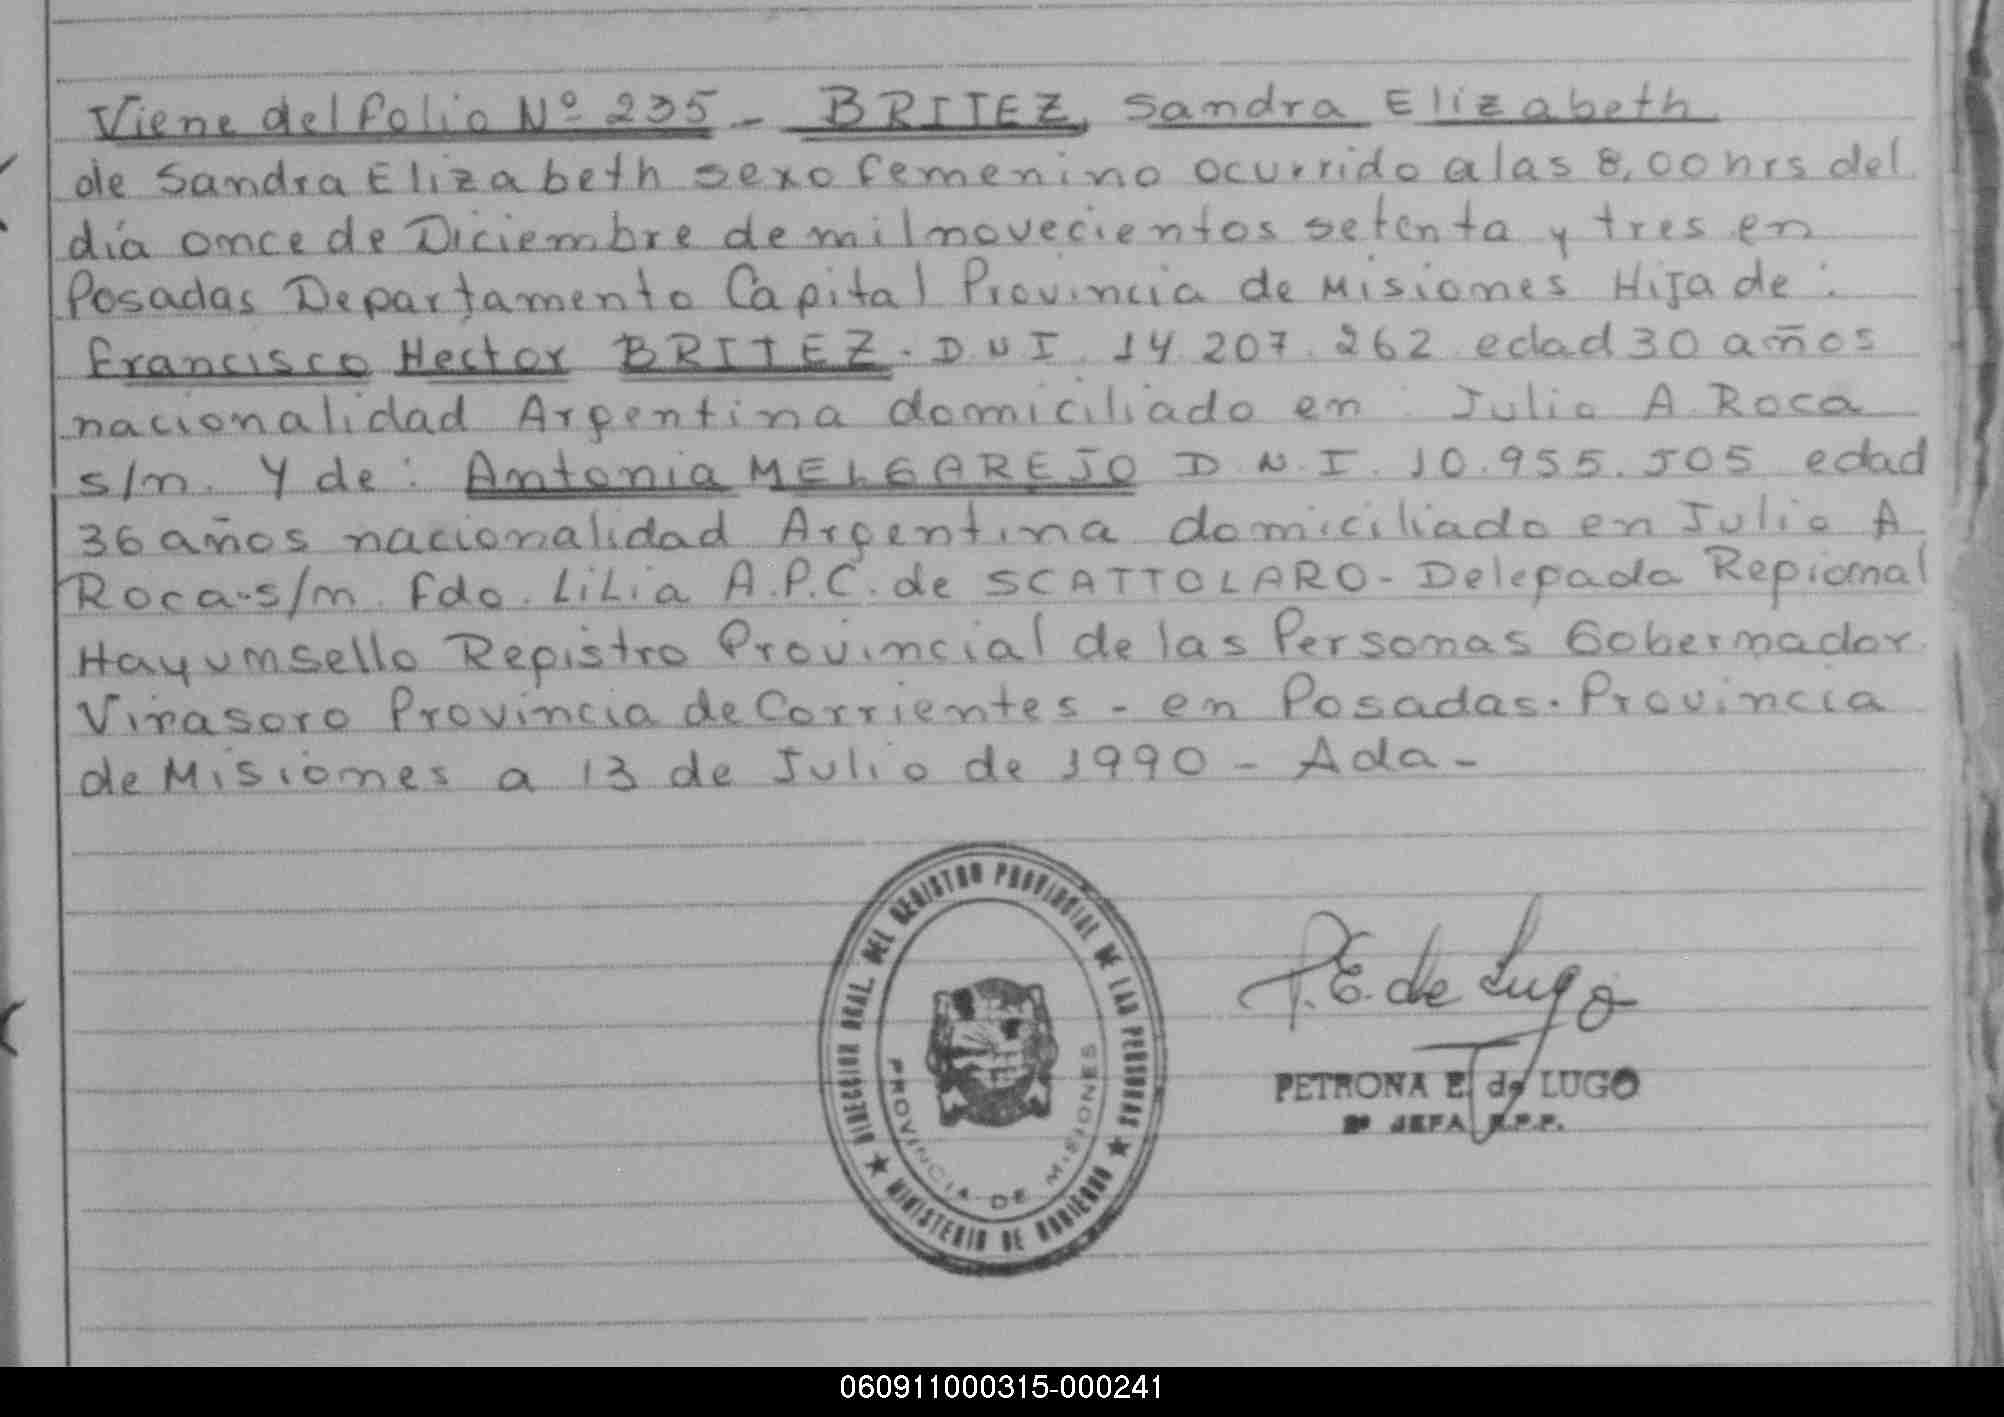 Viene del folio Nº 235 - BRITEZ, Sandra Elizabeth
de Sandra Elizabeth sexo femenino ocurrido a las 8,00 hrs del
día once de Diciembre de mil novecientos setenta y tres en
Posadas Departamento Capital Provincia de Misiones Hija de:
Francisco Hector BRITEZ. D N I. 14.207.262 edad 30 años
nacionalidad Argentina domiciliado en: Julio A. Roca
s/n. Y de: Antonia MELGAREJO D.N.I. 10.955.505 edad
36 años nacionalidad Argentina domiciliado en Julio A
Roca.s/n. Fdo. LiLia A.P.C. de SCATTOLARO - Delegada Regional
Hay un sello Registro Provincial de las Personas Gobernador
Virasoro Provincia de Corrientes - en Posadas. Provincia
de Misiones a 13 de Julio de 1990 - Ada -
DIRECCION GRAL. DEL REGISTRO PROVINCIAL DE LAS PERSONAS
PROVINCIA DE MISIONES
★ MINISTERIO DE GOBIERNO ★
P.E. de Lugo
PETRONA E. de LUGO
2º JEFA R.P.P.
060911000315-000241